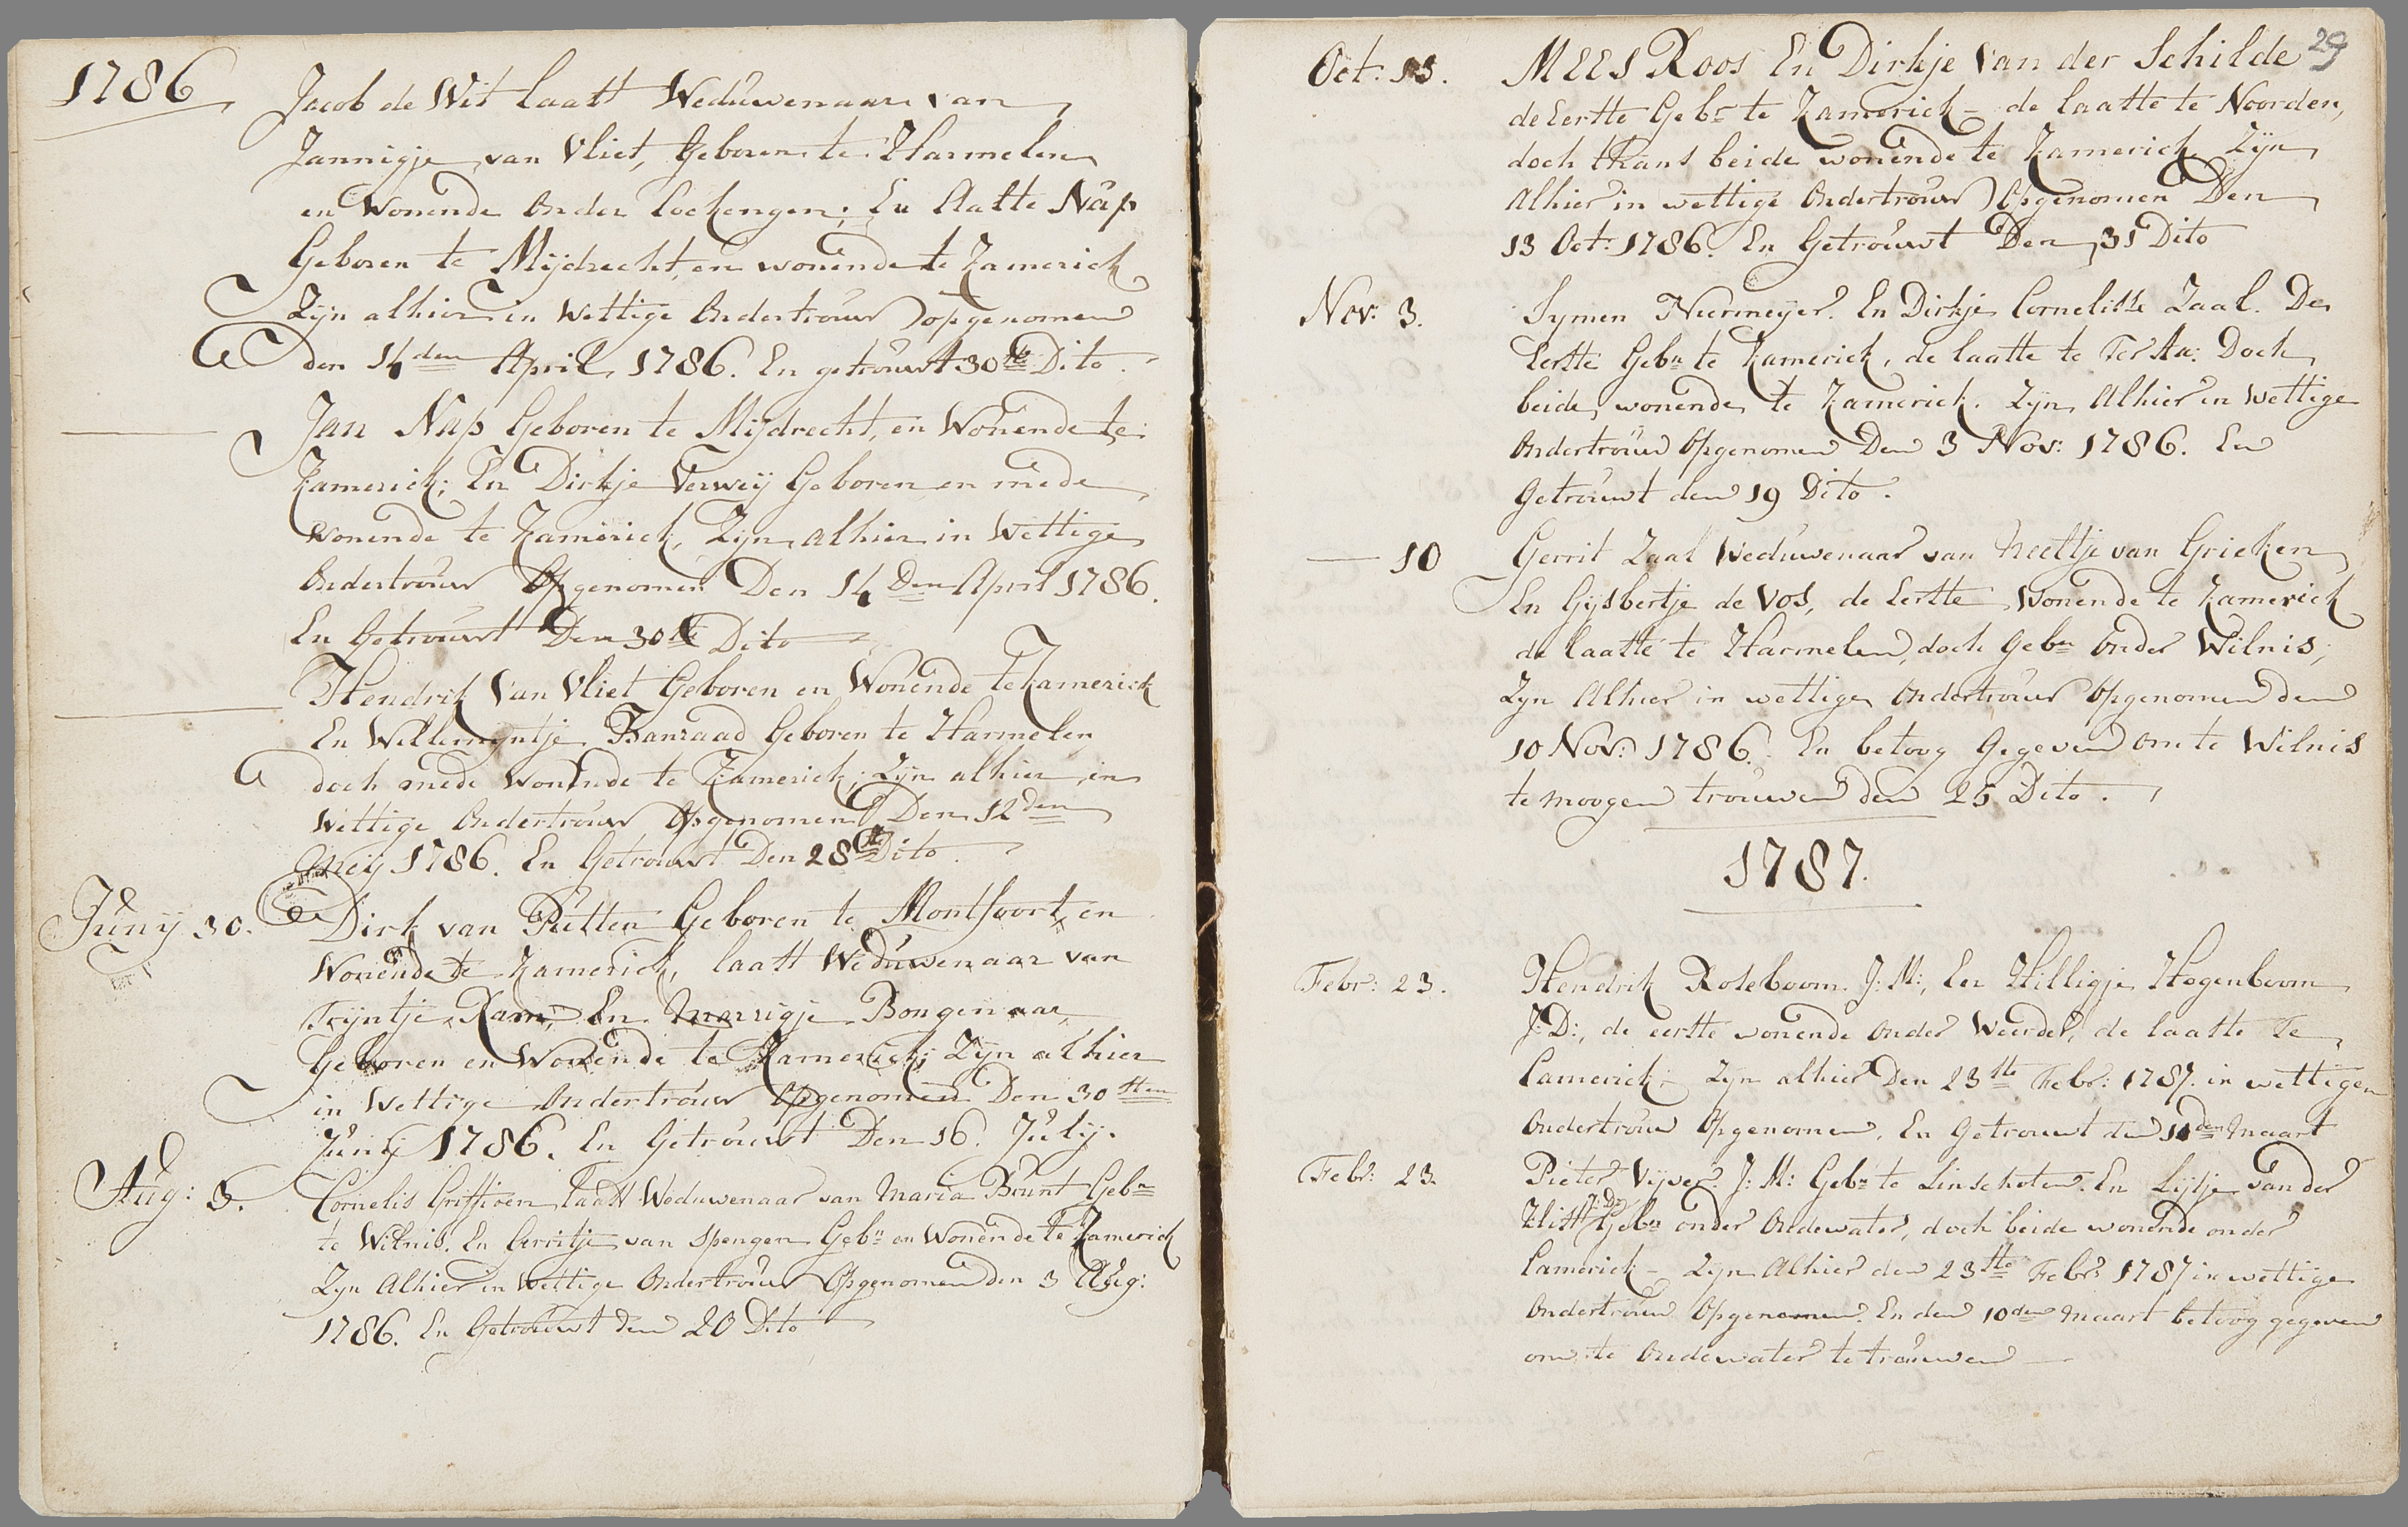 1786
Jacob de Wit laast Weduwenaar van
Jannigje van Vliet, Geboren te Harmelen
en Wonende Onder Cockengen; En Aatte Nap
Geboren te Mijdrecht, en wonende te Kamerick
Zijn alhier in Wettige Ondertrouw opgenomen
den 14den April 1786. En getrouwt 30ste Dito.
Jan Nap Geboren te Mijdrecht, en Wonende te
Kamerick; En Dirkje Verweij Geboren en mede
wonende te Kamerick, Zijn alhier in Wettige
Ondertrouw Opgenomen Den 14 Den April 1786.
En Getrouwt Den 30ste Dito
Hendrik Van Vliet Geboren en Wonende te Kamerick
En Willemijntje Banraad Geboren te Harmelen
doch mede Wonende te Kamerick; Zijn alhier in
Wettige Ondertrouw Opgenomen Den 12den
Meij 1786. En Getrouwt Den 28ste Dito.
Junij 30. Dirk van Putten Geboren te Montfoort, en
Wonende te Kamerick, laast Weduwenaar van
Trijntje Ram, En Marrigje Bongenaar
Geboren en Wonende te Kamerick; Zijn alhier
in Wettige Ondertrouw Opgenomen Den 30sten
Junij 1786. En Getrouwt Den 16. Julij.
Aug: 3. Cornelis Griffioen laast Weduwenaar van Maria Brunt Gebn
te Wilnis. En Gerritje van Spengen Gebn en Wonende te Kamerick
Zijn Alhier in Wettige Ondertrouw Opgenomen den 3 Aug:
1786. En Getrouwt den 20 Dito
29
Oct: 13. MEES Roos En Dirkje Van der Schilde
de Eerste Gebr te Kamerick – de laatste te Noorden,
doch thans beide wonende te Kamerick Zijn
Alhier in wettige Ondertrouw Opgenomen Den
13 Oct: 1786. En Getrouwt Den 31 Dito
Nov: 3. Symen Niermeyer. En Dirkje Cornelisse Zaal. De
Eerste Gebn te Kamerick, de laatste te Ter Aa: Doch
beide wonende te Kamerick. Zijn Alhier in Wettige
Ondertrouw Opgenomen Den 3 Nov: 1786. En
Getrouwt den 19 Dito.
— 10 Gerrit Zaal Weduwenaar van Neeltje van Grieken
En Gijsbertje de Vos, de Eerste Wonende te Kamerick
de laatste te Harmelen, doch Gebn onder Wilnis;
Zijn Alhier in wettige Ondertrouw Opgenomen den
10 Nov: 1786. En betoog Gegeven om te Wilnis
te moogen trouwen den 25 Dito.
1787.
Febr: 23. Hendrik Roseboom. J: M:, En Hilligje Hogenboom
J: D:, de eerste wonende onder Weerder, de laatste Te
Camerick – Zijn alhier Den 23ste Febr: 1787. in wettigen
Ondertrouw Opgenomen, En Getrouwt den 10den Maart
Febr: 23. Pieter Vijver. J: M: Gebn te Linschoten. En Lijsje van der
Klist J: D: Gebn onder Oudewater, doch beide wonende onder
Camerick – Zijn Alhier den 23ste Febr: 1787 in wettige
Ondertrouw Opgenomen. En den 10den Maart betoog gegeven
om te Oudewater te trouwen